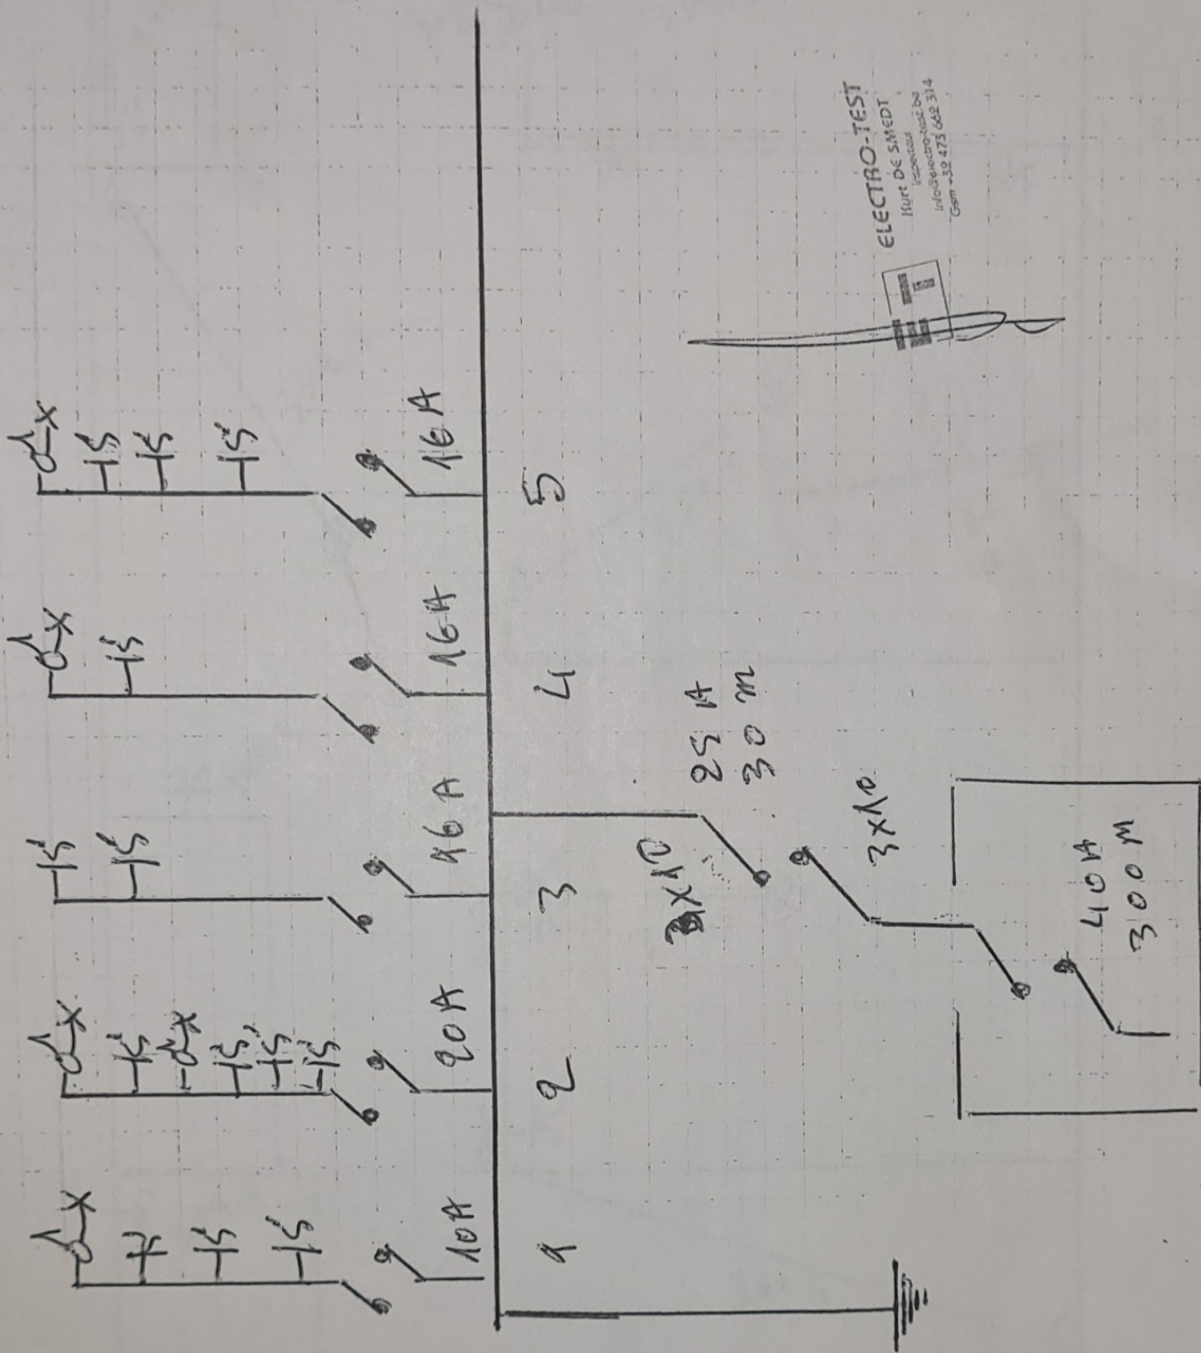 10A
20A
16A
16A
16A
1
2
3
4
5
3x10
25 A
30 m
3x10
40A
300 M
ELECTRO-TEST
Kurt DE SMEDT
Inspecteur
info@electro-test.be
Gsm +32 473 662 314